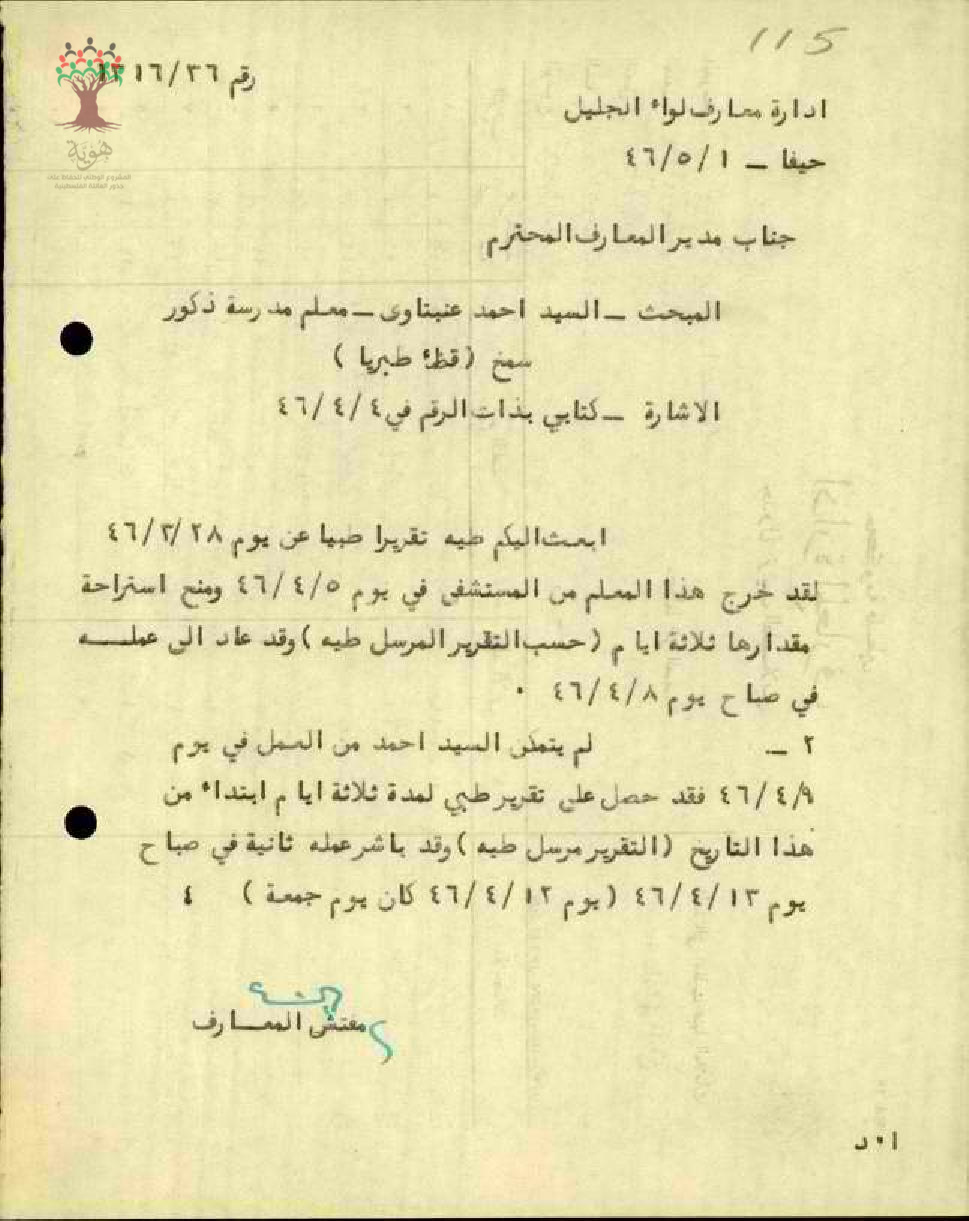 115
هوية
المشروع الوطني للحفاظ على
جذور العائلة الفلسطينية
رقم ٣٦/
ادارة معارف لواء الجليل
حيفا – ٤٦/٥/١
جناب مدير المعارف المحترم
المبحث – السيد احمد عنبتاوى – معلم مدرسة ذكور
سمخ ( طبريا )
الاشارة – كتابي بذات الرقم في ٤٦/٤/٤
ابعث اليكم طيه تقريرا طبيا عن يوم
لقد خرج هذا المعلم من المستشفى في يوم ٤٦/٤/٥ ومنح استراحة
مقدارها ثلاثة ايام (حسب التقرير المرسل طيه ) وقد عاد الى عملـــه
في صباح يوم ٤٦/٤/٨ ٠
٢ – لم يتمكن السيد احمد من العمل في يوم
٤٦/٤/٩ فقد حصل على تقرير طبي لمدة ثلاثة ايام ابتداء من
هذا التاريخ (التقرير مرسل طيه ) وقد باشر عمله ثانية في صباح
يوم ٤٦/٤/١٣ (يوم ٤٦/٤/١٢ كان يوم جمعة ) ٤
مفتش المعــارف
ا٠د